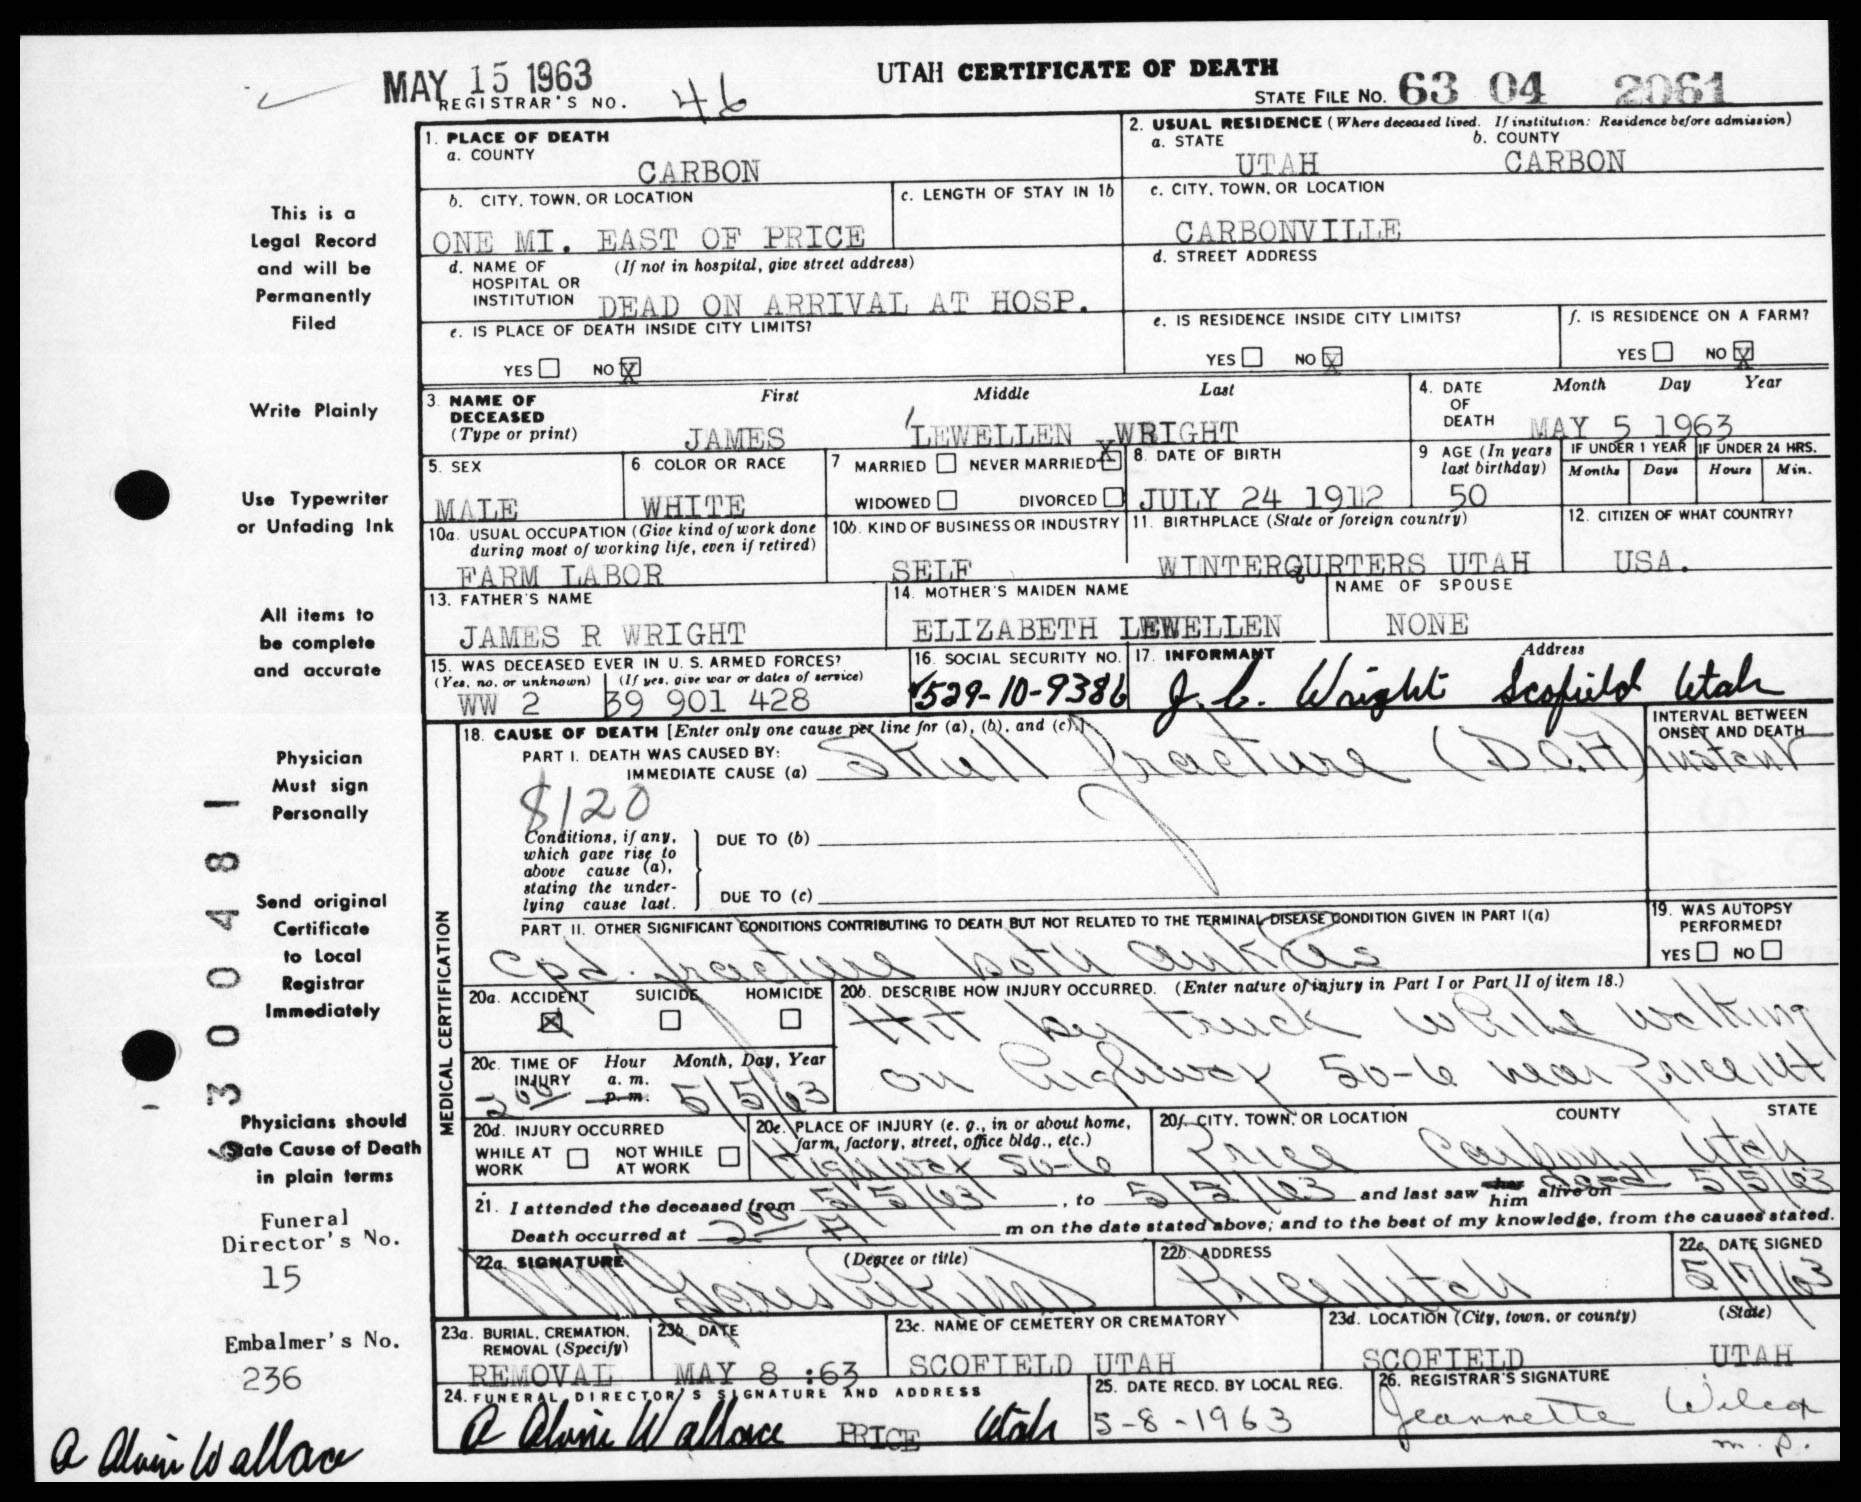 MAY 15 1963
REGISTRAR'S NO. 46
UTAH CERTIFICATE OF DEATH
STATE FILE NO. 63 04 2061
1. PLACE OF DEATH
a. COUNTY
CARBON
2. USUAL RESIDENCE (Where deceased lived. If institution: Residence before admission)
a. STATE b. COUNTY
UTAH CARBON
b. CITY, TOWN, OR LOCATION
ONE MI. EAST OF PRICE
c. LENGTH OF STAY IN 1b
c. CITY, TOWN, OR LOCATION
CARBONVILLE
d. NAME OF HOSPITAL OR INSTITUTION (If not in hospital, give street address)
DEAD ON ARRIVAL AT HOSP.
d. STREET ADDRESS
e. IS PLACE OF DEATH INSIDE CITY LIMITS?
YES NO X
e. IS RESIDENCE INSIDE CITY LIMITS?
YES NO X
f. IS RESIDENCE ON A FARM?
YES NO X
3. NAME OF DECEASED (Type or print)
First Middle Last
JAMES LEWELLEN WRIGHT
4. DATE OF DEATH
Month Day Year
MAY 5 1963
5. SEX
MALE
6 COLOR OR RACE
WHITE
7 MARRIED NEVER MARRIED X
WIDOWED DIVORCED
8. DATE OF BIRTH
JULY 24 1912
9 AGE (In years last birthday)
50
IF UNDER 1 YEAR
Months Days
IF UNDER 24 HRS.
Hours Min.
10a. USUAL OCCUPATION (Give kind of work done during most of working life, even if retired)
FARM LABOR
10b. KIND OF BUSINESS OR INDUSTRY
SELF
11. BIRTHPLACE (State or foreign country)
WINTERQURTERS UTAH
12. CITIZEN OF WHAT COUNTRY?
USA.
13. FATHER'S NAME
JAMES R WRIGHT
14. MOTHER'S MAIDEN NAME
ELIZABETH LEWELLEN
NAME OF SPOUSE
NONE
15. WAS DECEASED EVER IN U. S. ARMED FORCES?
(Yes, no, or unknown) (If yes, give war or dates of service)
WW 2 39 901 428
16. SOCIAL SECURITY NO.
529-10-9386
17. INFORMANT Address
J. C. Wright Scofield Utah
18. CAUSE OF DEATH [Enter only one cause per line for (a), (b), and (c).]
INTERVAL BETWEEN ONSET AND DEATH
PART I. DEATH WAS CAUSED BY:
IMMEDIATE CAUSE (a) Skull fracture (D.O.A) Instant
8120
Conditions, if any, which gave rise to above cause (a), stating the underlying cause last.
DUE TO (b)
DUE TO (c)
PART II. OTHER SIGNIFICANT CONDITIONS CONTRIBUTING TO DEATH BUT NOT RELATED TO THE TERMINAL DISEASE CONDITION GIVEN IN PART I(a)
Cpd. fracture both ankles
19. WAS AUTOPSY PERFORMED?
YES NO
MEDICAL CERTIFICATION
20a. ACCIDENT SUICIDE HOMICIDE
X
20b. DESCRIBE HOW INJURY OCCURRED. (Enter nature of injury in Part I or Part II of item 18.)
Hit by truck while walking
on highway 50-6 near Price, Ut
20c. TIME OF INJURY Hour a. m. p. m. Month, Day, Year
2 00 5/5/63
20d. INJURY OCCURRED
WHILE AT WORK NOT WHILE AT WORK
20e. PLACE OF INJURY (e. g., in or about home, farm, factory, street, office bldg., etc.)
Highway 50-6
20f. CITY, TOWN, OR LOCATION COUNTY STATE
Price Carbon Utah
21. I attended the deceased from 5/5/63, to 5/5/63 and last saw her him alive on dead 5/5/63
Death occurred at 2 00 A m on the date stated above; and to the best of my knowledge, from the causes stated.
22a. SIGNATURE (Degree or title)
22b. ADDRESS
Price, Utah
22c. DATE SIGNED
5/7/63
23a. BURIAL, CREMATION, REMOVAL (Specify)
REMOVAL
23b. DATE
MAY 8 :63
23c. NAME OF CEMETERY OR CREMATORY
SCOFIELD UTAH
23d. LOCATION (City, town, or county) (State)
SCOFIELD UTAH
24. FUNERAL DIRECTOR'S SIGNATURE AND ADDRESS
A Alvin Wallace PRICE Utah
25. DATE RECD. BY LOCAL REG.
5-8-1963
26. REGISTRAR'S SIGNATURE
Jeannette Wilcox
m. p.
This is a
Legal Record
and will be
Permanently
Filed
Write Plainly
Use Typewriter
or Unfading Ink
All items to
be complete
and accurate
Physician
Must sign
Personally
Send original
Certificate
to Local
Registrar
Immediately
Physicians should
State Cause of Death
in plain terms
Funeral
Director's No.
15
Embalmer's No.
236
A Alvin Wallace